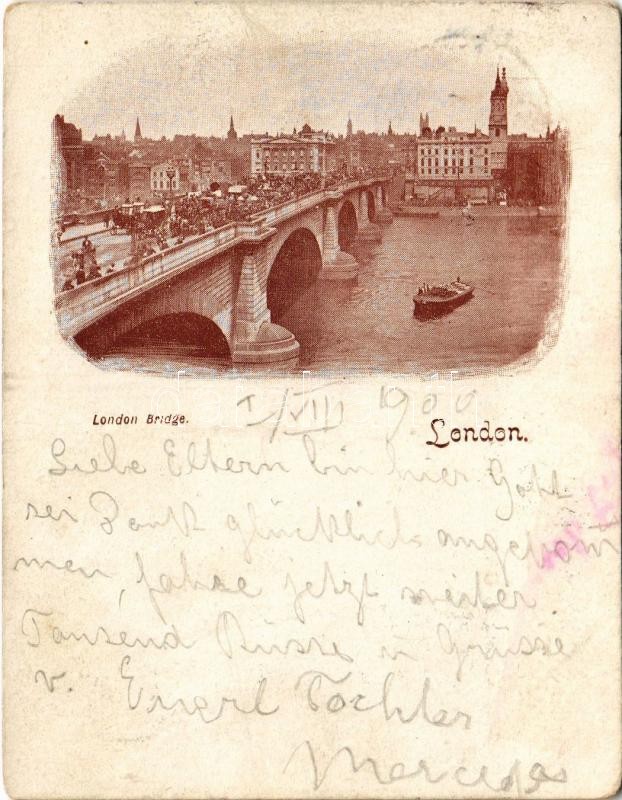 London Bridge.
I/VIII 1900
London.
Liebe Eltern bin hier Gott
sei Dank glücklich angekom
men, fahre jetzt weiter
Tausend Küsse u Grüsse
v. Tochter
Mercedes